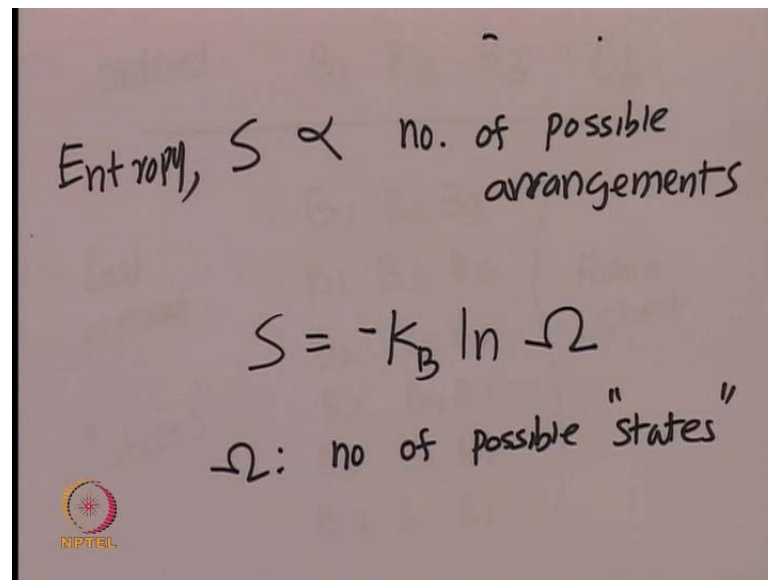 Entropy, S ∝ no. of possible
arrangements
S = -K_B ln Ω
Ω: no of possible "states"
NPTEL